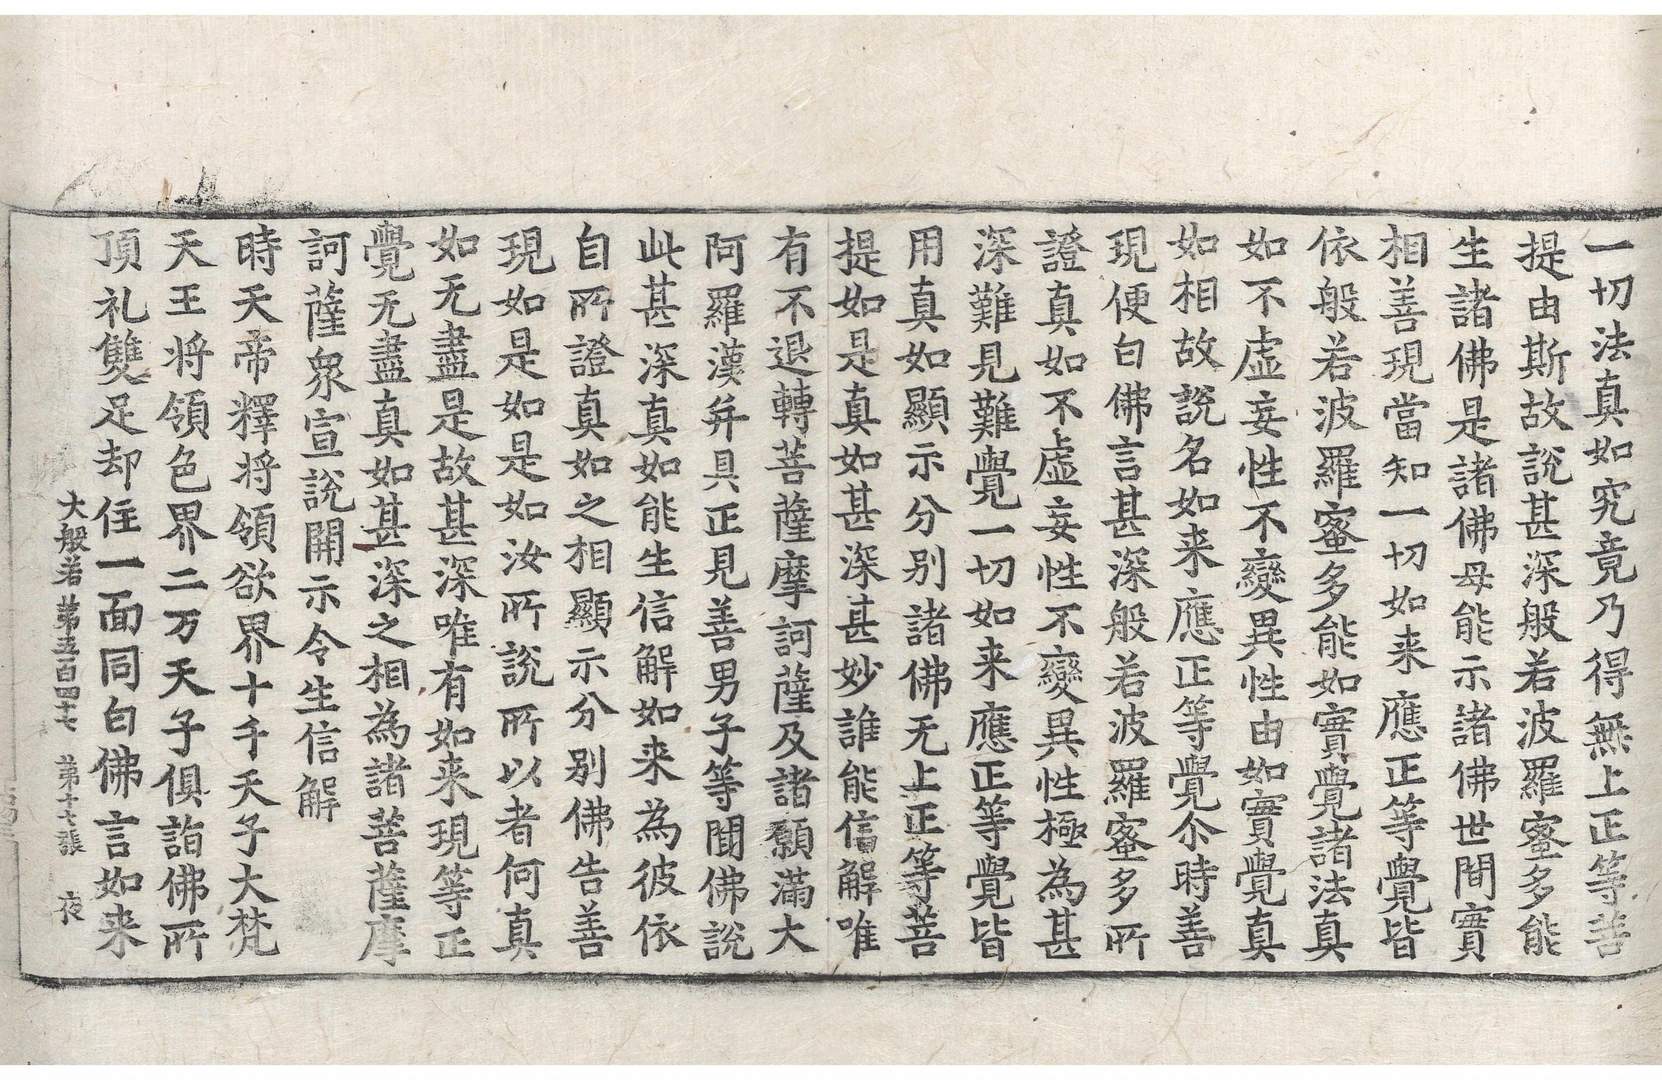 一切法真如究竟乃得無上正等菩
提由斯故說甚深般若波羅蜜多能
生諸佛是諸佛母能示諸佛世間實
相善現當知一切如来應正等覺皆
依般若波羅蜜多能如實覺諸法真
如不虛妄性不變異性由如實覺真
如相故說名如来應正等覺尒時善
現便白佛言甚深般若波羅蜜多所
證真如不虛妄性不變異性極為甚
深難見難覺一切如来應正等覺皆
用真如顯示分別諸佛无上正等菩
提如是真如甚深甚妙誰能信解唯
有不退轉菩薩摩訶薩及諸願滿大
阿羅漢并具正見善男子等聞佛說
此甚深真如能生信解如来為彼依
自所證真如之相顯示分別佛告善
現如是如是如汝所說所以者何真
如无盡是故甚深唯有如来現等正
覺无盡真如甚深之相為諸菩薩摩
訶薩衆宣說開示令生信解
時天帝釋將領欲界十千天子大梵
天王將領色界二万天子俱詣佛所
頂礼雙足却住一面同白佛言如来
大般若第五百四十七 第十七張 夜